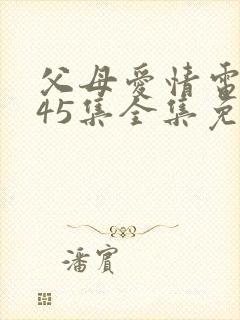 父母爱情電
45集全集免
潘賓